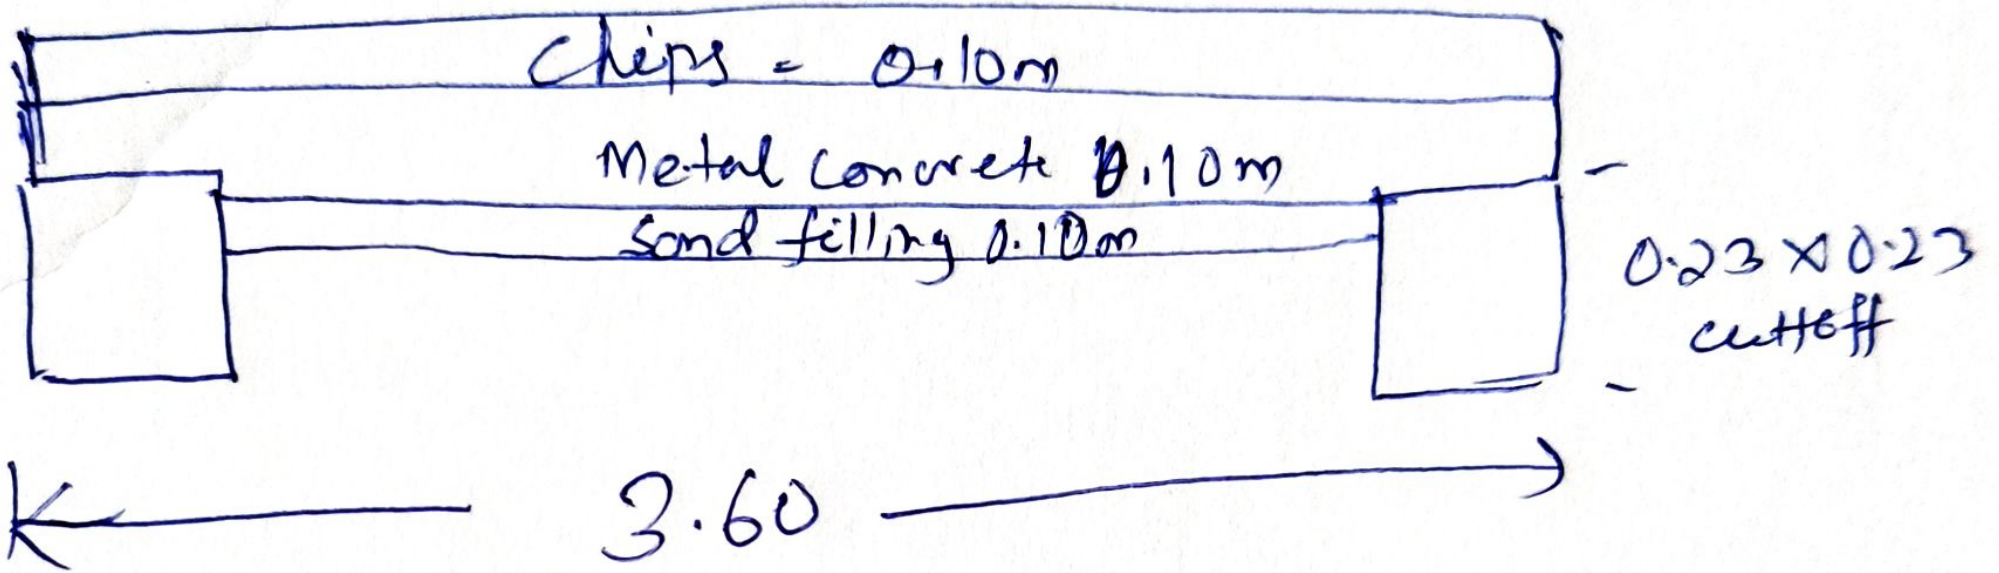 Chips - 0.10m
Metal concrete 0.10m
Sand filling 0.10m
0.23 x 0.23
cuttoff
3.60